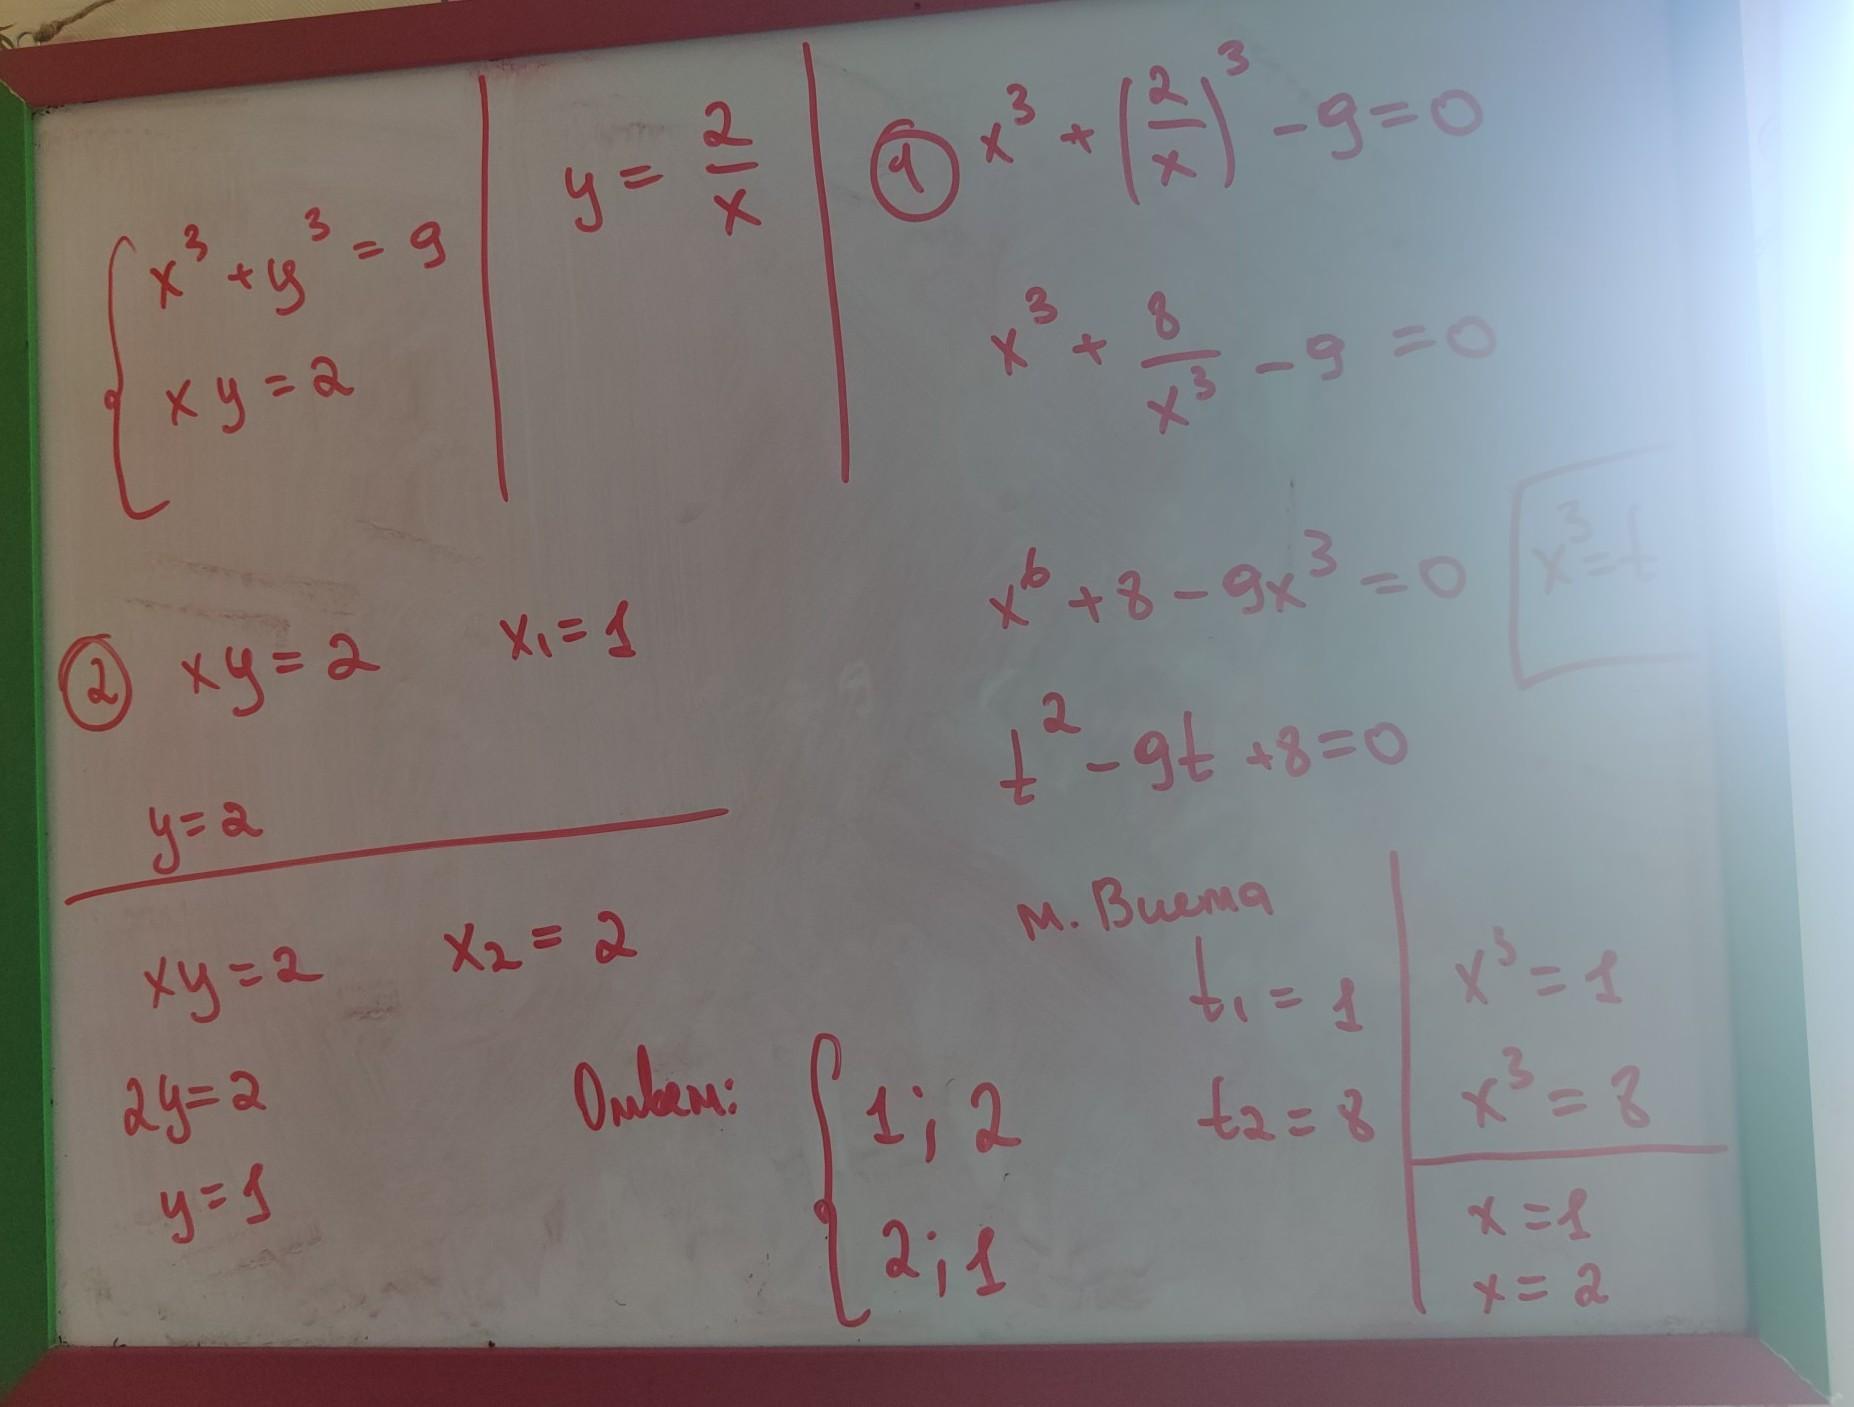 x³ + y³ = 9
xy = 2
y = 2/x
① x³ + (2/x)³ - 9 = 0
x³ + 8/x³ - 9 = 0
x⁶ + 8 - 9x³ = 0
x³ = t
t² - 9t + 8 = 0
т. Виета
t₁ = 1
t₂ = 8
x³ = 1
x³ = 8
x = 1
x = 2
② xy = 2 x₁ = 1
y = 2
xy = 2 x₂ = 2
2y = 2
y = 1
Ответ:
1; 2
2; 1